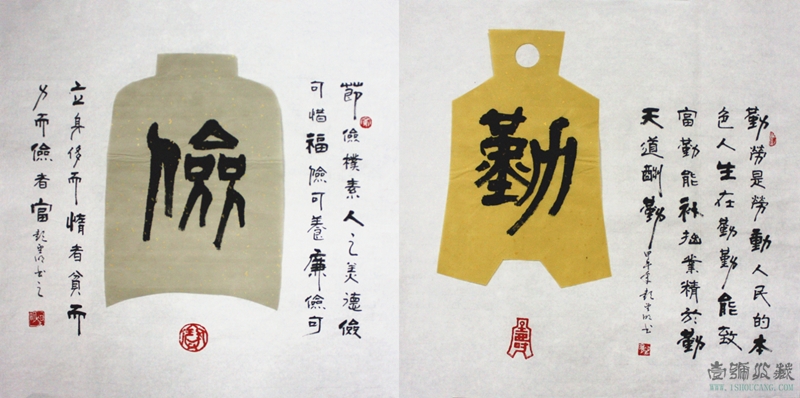 勤
勤勞是勞動人民的本
色人生在勤勤能致
富勤能補拙業精於勤
天道酬勤
儉
節儉樸素人之美德儉
可惜福儉可養廉儉可
立身侈而惰者貧而
力而儉者富
壹號收藏
WWW.1SHOUCANG.COM